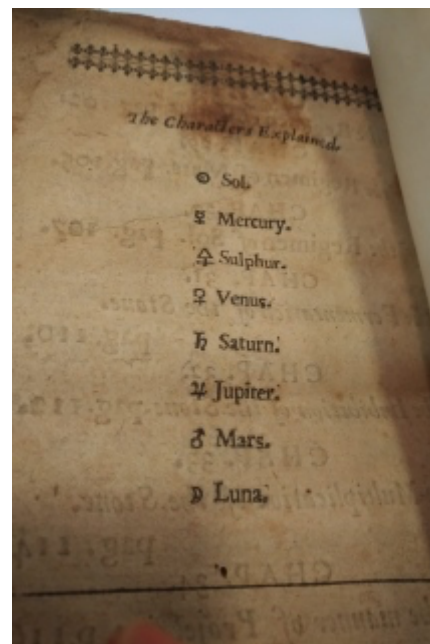 The Characters Explained.
☉ Sol.
☿ Mercury.
🜍 Sulphur.
♀ Venus.
♄ Saturn.
♃ Jupiter.
♂ Mars.
☽ Luna.